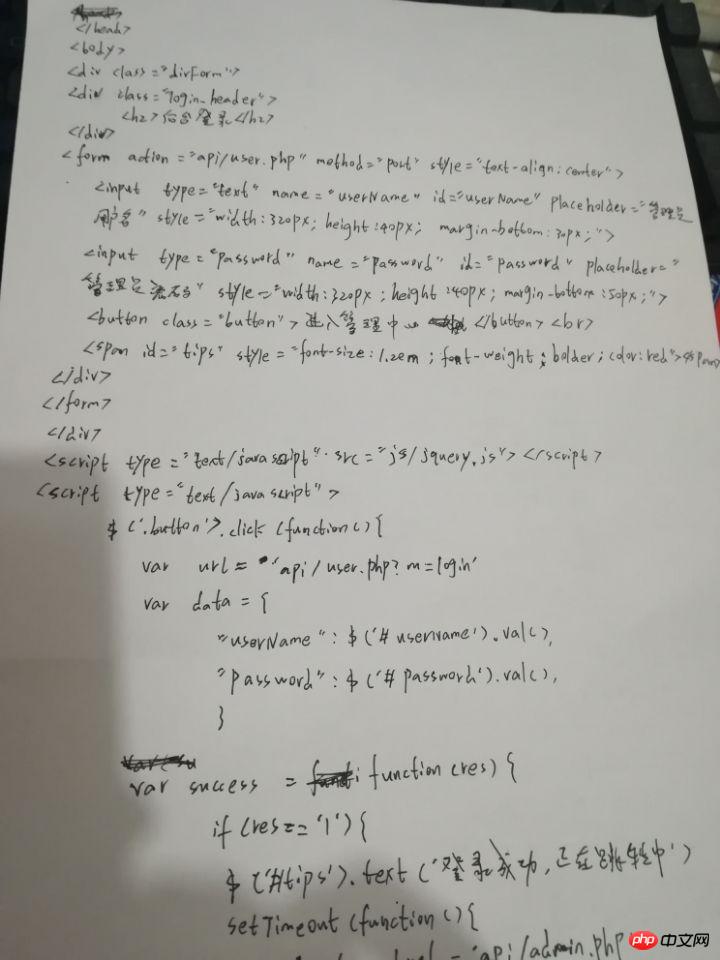 </head>
<body>
<div class="divForm">
<div class="login_header">
<h2>后台登录</h2>
</div>
<form action="api/user.php" method="post" style="text-align:center">
<input type="text" name="userName" id="userName" placeholder="管理员
用户名" style="width:320px; height:40px; margin-bottom:30px;">
<input type="password" name="password" id="password" placeholder="
管理员密码" style="width:320px; height:40px; margin-bottom:50px;">
<button class="button">进入管理中心</button><br>
<span id="tips" style="font-size:1.2em; font-weight:bolder; color:red"></span>
</div>
</form>
</div>
<script type="text/javascript" src="js/jquery.js"></script>
<script type="text/javascript">
$('.button').click(function(){
var url = 'api/user.php?m=login'
var data = {
"userName":$('#username').val(),
"password":$('#password').val(),
}
var success = function(res){
if(res=='1'){
$('#tips').text('登录成功,正在跳转中')
setTimeout(function(){
= 'api/admin.php'
php 中文网